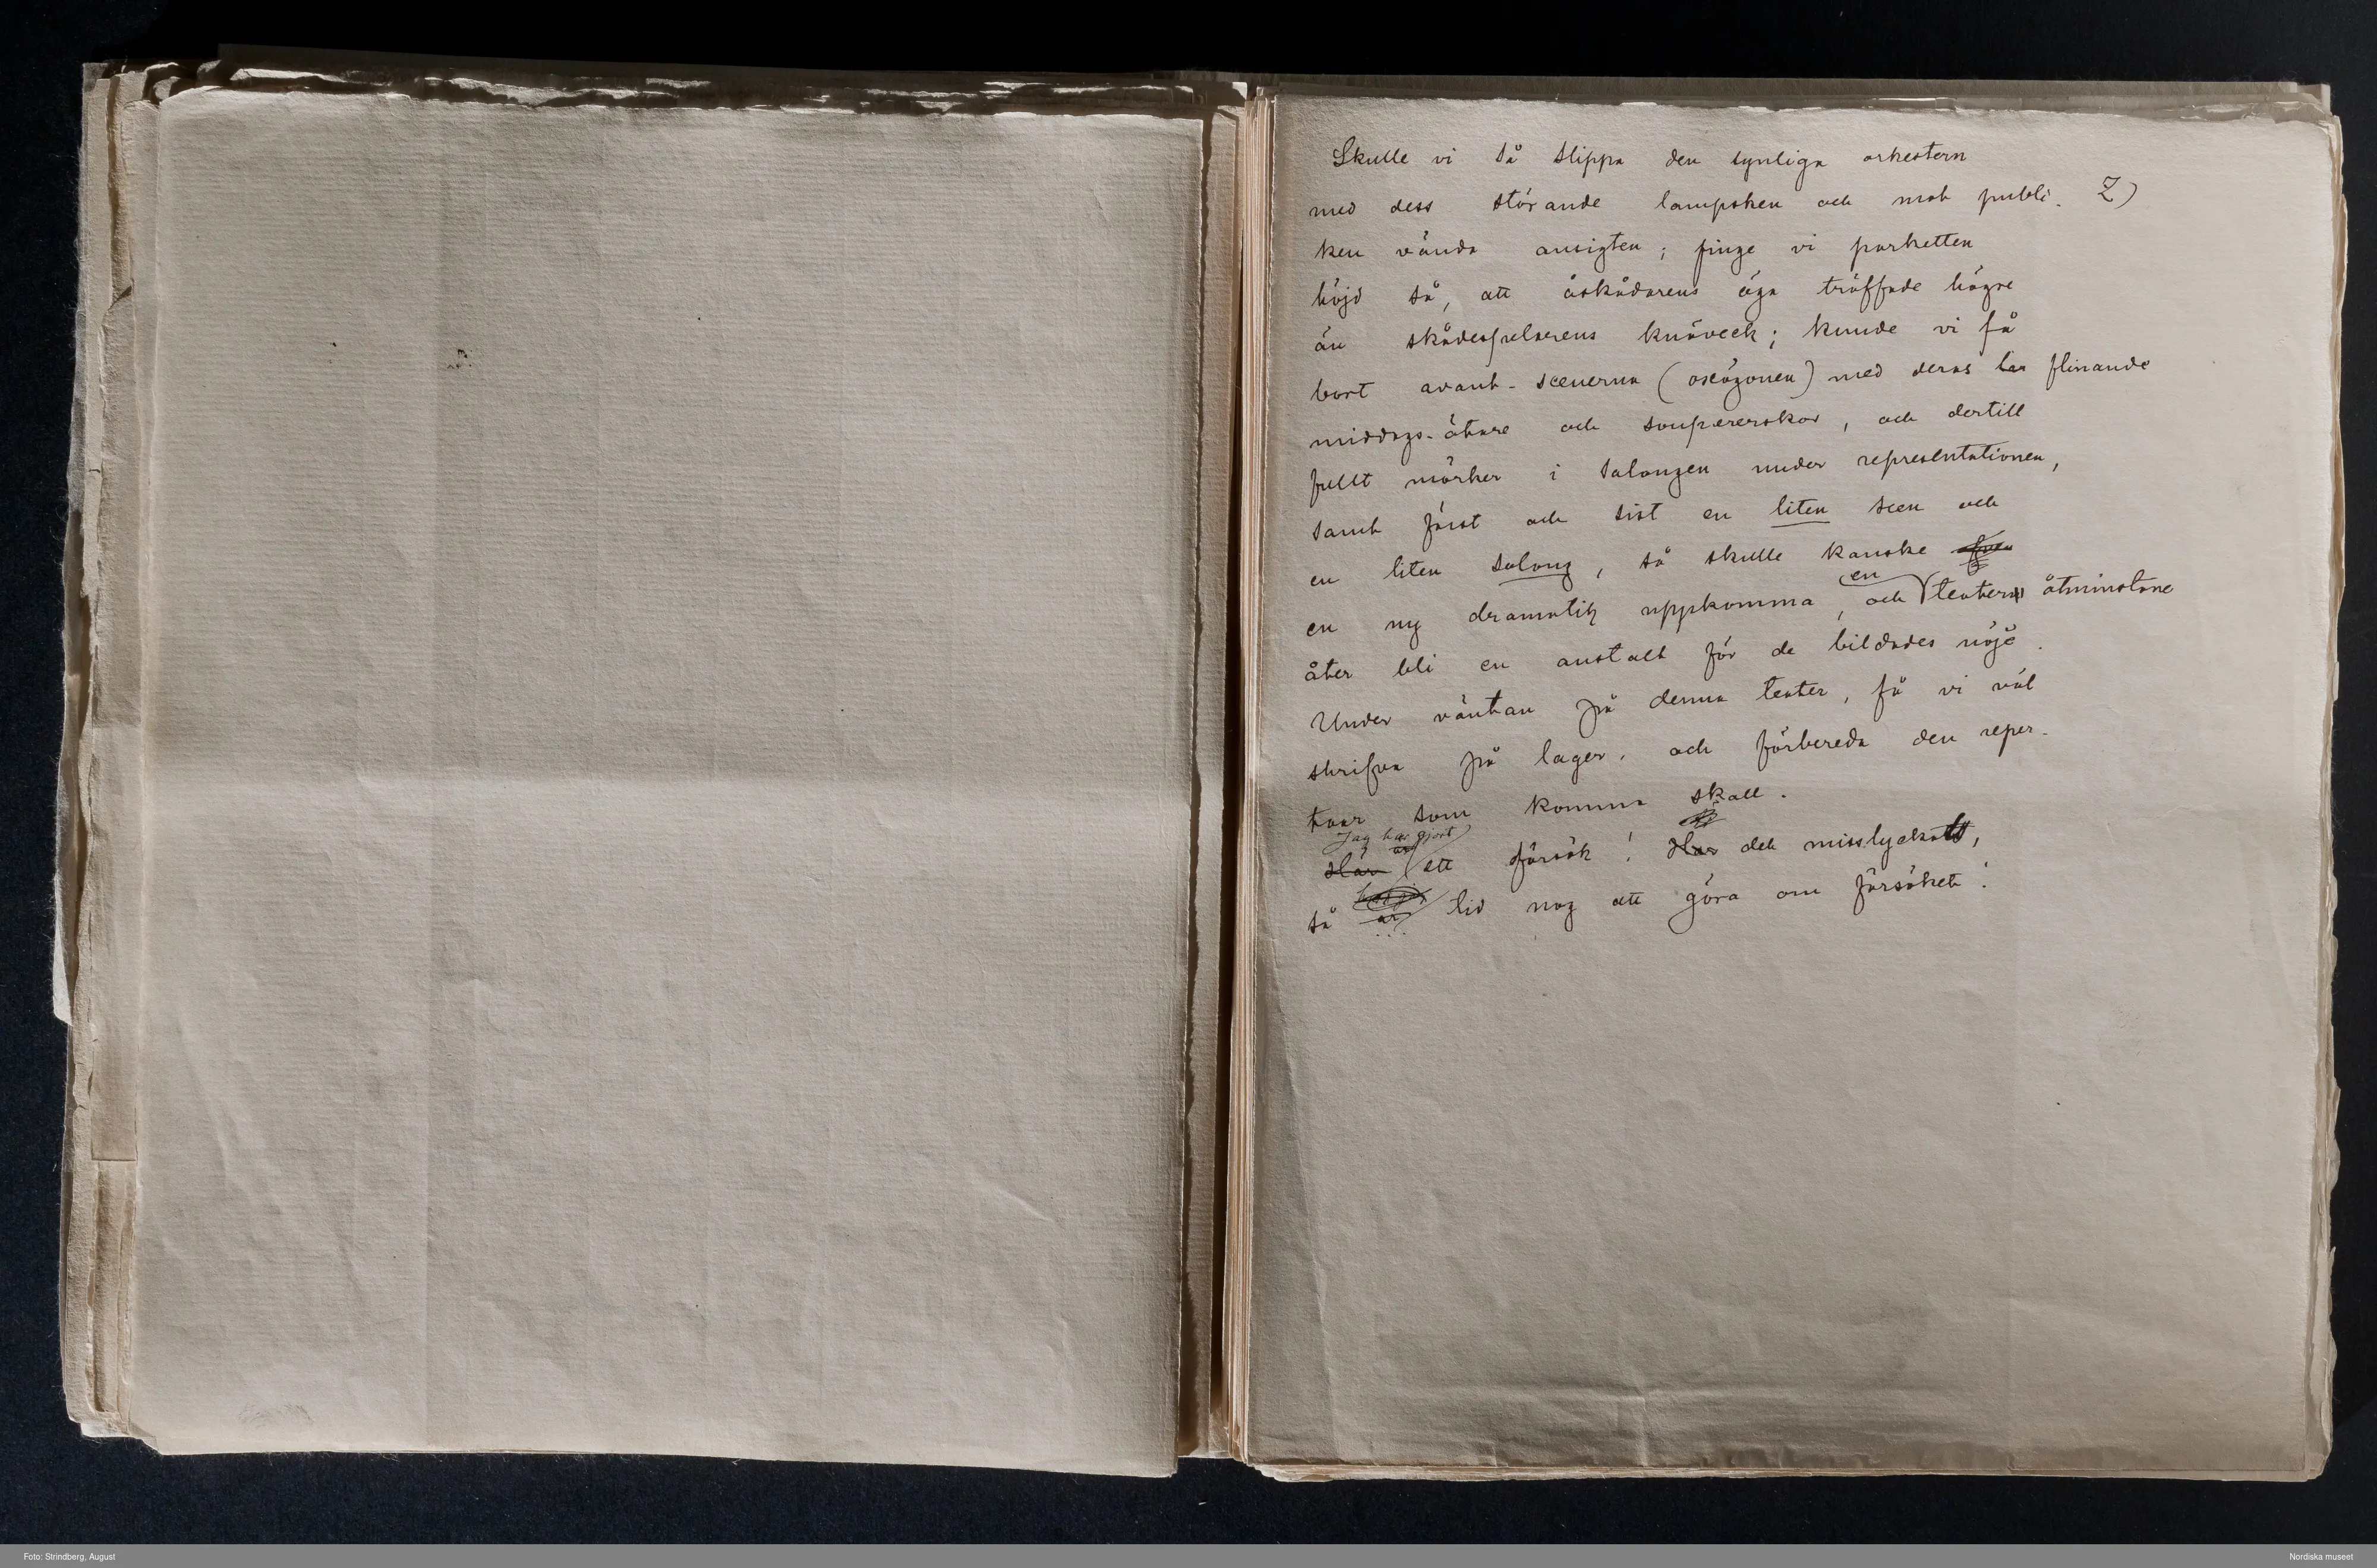 Skulle vi så slippa den synliga orkestern
med dess störande lampsken och mot publi- Z)
ken vända ansigten; finge vi parketten
höjd så, att åskådarens öga träffade högre
än skådespelarens knäveck; kunde vi få
bort avant-scenerna (oxögonen) med deras flinande
middags-ätare och soupererskor, och dertill
fullt mörker i salongen under representationen,
samt först och sist en liten scen och
en liten salong, så skulle kanske
en ny dramatik uppkomma, och en teater åtminstone
åter bli en anstalt för de bildades nöje.
Under väntan på denna teater, få vi väl
skrifva på lager, och förbereda den reper-
toar som komma skall.
Jag har gjort
Här ett försök! Har det misslyckats,
så är tid nog att göra om försöket!
Foto: Strindberg, August
Nordiska museet